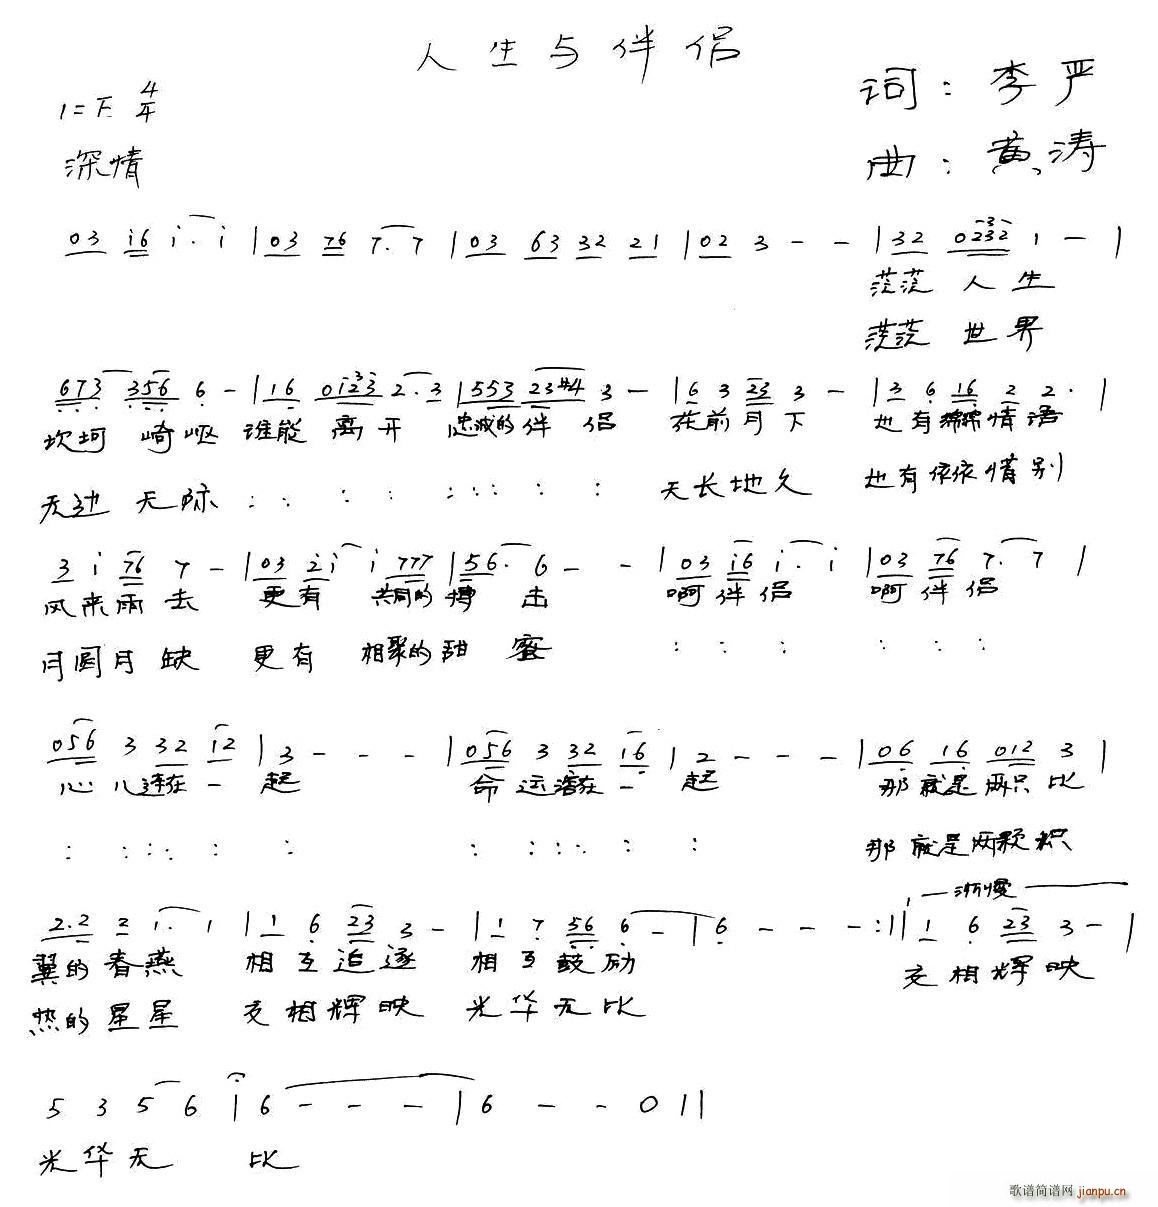 人生与伴侣
词：李严
1=F 4/4
深情
曲：黄涛
03 i6 i. i | 03 76 7. 7 | 03 63 32 21 | 02 3 - - | 32 0232 1 - |
茫茫 人 生
茫茫 世 界
673 356 6 - | 16 0123 2.3 | 553 23#4 3 - | 6 3 23 3 - | 3 6 16 2 2. |
坎坷 崎岖 谁能 离 开 忠诚的 伴 侣 花前月下 也有绵绵情语
无边 无际 : : : : : : : : : : 天长地久 也有依依惜别
3 i 76 7 - | 03 2i i 777 | 56. 6 - - | 03 i6 i. i | 03 76 7. 7 |
风来雨去 更有 共同的搏 击 啊伴侣 啊伴侣
月圆月缺 更有 相聚的甜 蜜 : : : : : :
056 3 32 12 | 3 - - - | 056 3 32 16 | 2 - - - | 06 16 012 3 |
心儿连在一 起 命运在一 起 那就是两只比
: : : : : : : : : : : : 那就是两颗炽
渐慢
2.2 2 1. 1 | 1 6 23 3 - | 1 7 56 6 - | 6 - - - :|| 1 6 23 3 - |
翼的春燕 相互追逐 相互鼓励 交相辉映
热的星星 交相辉映 光华无比
5 3 5 6 | 6 - - - | 6 - - 0 ||
光华无 比
歌谱简谱网 jianpu.cn